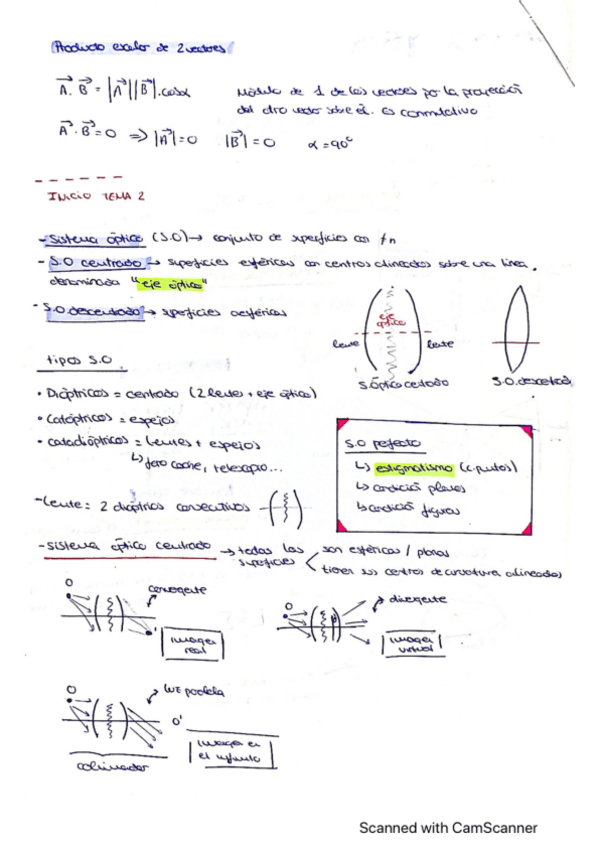 Producto escalar de 2 vectores
A · B = |A||B|.cosα
Módulo de 1 de los vectores por la proyección
del otro vector sobre él. Es conmutativo
A · B = 0 ⇒ |A| = 0 |B| = 0 α = 90°
INICIO TEMA 2
- Sistema óptico (S.O) → conjunto de superficies con ≠ n
- S.O centrado → superficies esféricas con centros alineados sobre una línea,
denominada "eje óptico"
- S.O. descentrado → superficies
eje
óptico
lente
lente
S. óptico centrado
S.O. descentrado
tipos S.O
• Dióptricos = centrado (2 lentes + eje óptico)
• Catóptricos = espejos
• catadióptricos = lentes + espejos
↳ faro coche, telescopio...
S.O perfecto
↳ estigmatismo (c. puntos)
↳ condición planos
↳ condición figuras
- Lente: 2 dióptricos consecutivos
- sistema óptico centrado → todas las
superficies
son esféricas / planas
tienen sus centros de curvatura alineados
O
convergente
O'
imagen
real
O
divergente
imagen
virtual
O
O'
imagen en
el infinito
colimador
Scanned with CamScanner